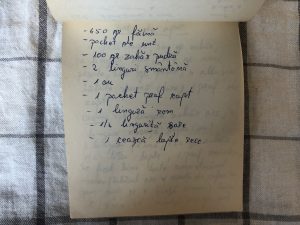 - 650 gr făină
- pachet de unt
- 100 gr zahăr pudră
- 2 linguri smântână
- 1 ou
- 1 pachet praf copt
- 1 lingură rom
- 1/2 linguriță sare
- 1 ceașcă lapte rece